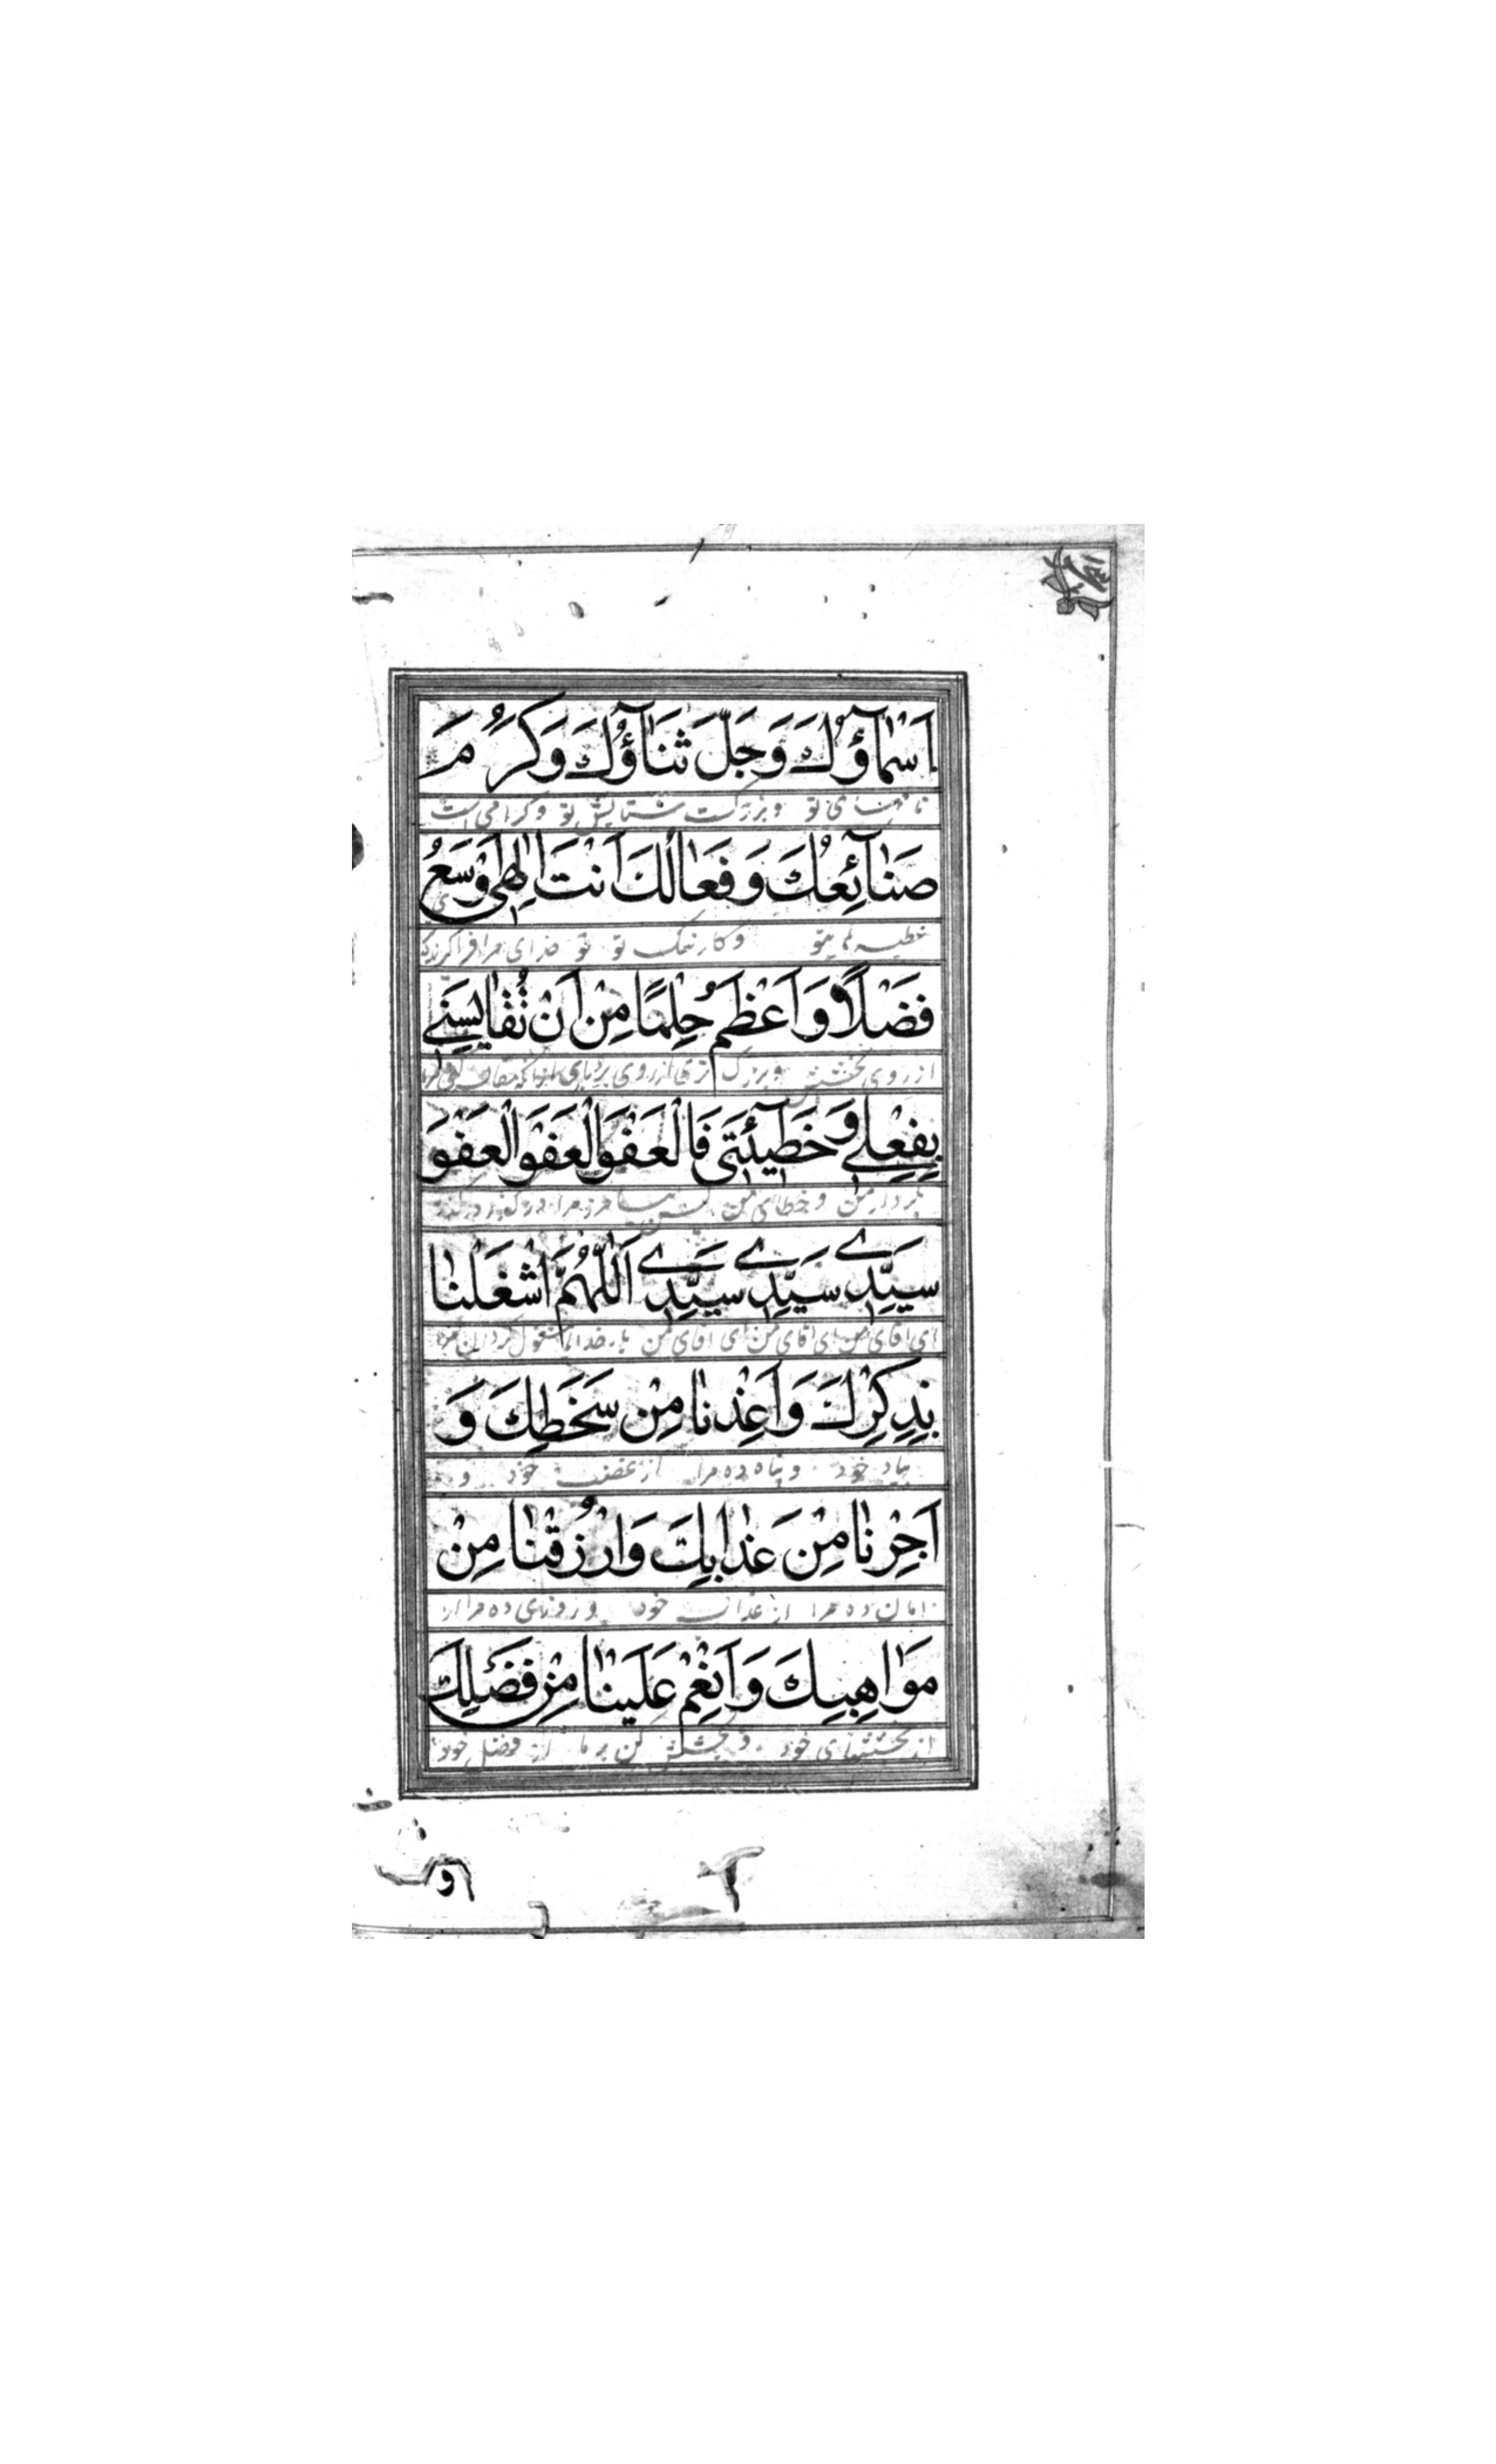 اَسْمآؤُكَ وَجَلَّ ثَنآؤُكَ وَكَرُمَ
نامهای تو وبزرکست ستایش تو وکرامی است
صَنآئِعُكَ وَفَعالُكَ اَنْتَ اِلٰهی اَوْسَعُ
عطیه های تو وکار نیک تو تو خدای مرا فراگیرنده
فَضْلًا وَاَعْظَمُ حِلْمًا مِنْ اَنْ تُقایِسَنی
از روی بخشش وبزرگ تری از روی بردباری از آنکه
بِفِعْلی وَخَطیٓئَتی فَالْعَفْوَ الْعَفْوَ الْعَفْوَ
بکردار من وخطای من پس بیامرز مرا درگذر درگذر
سَیِّدی سَیِّدی سَیِّدی اَللّٰهُمَّ اشْغَلْنا
ای اقای من ای اقای من ای اقای من بار خدایا مشغول گردان
بِذِكْرِكَ وَاَعِذْنا مِنْ سَخَطِكَ وَ
بیاد خود وپناه ده مرا از غضب خود و
اَجِرْنا مِنْ عَذابِكَ وَارْزُقْنا مِنْ
امان ده مرا از عذاب خود وروزی ده مرا از
مَواهِبِكَ وَاَنْعِمْ عَلَیْنا مِنْ فَضْلِكَ
از بخششهای خود و بخشش کن بر ما از فضل خود